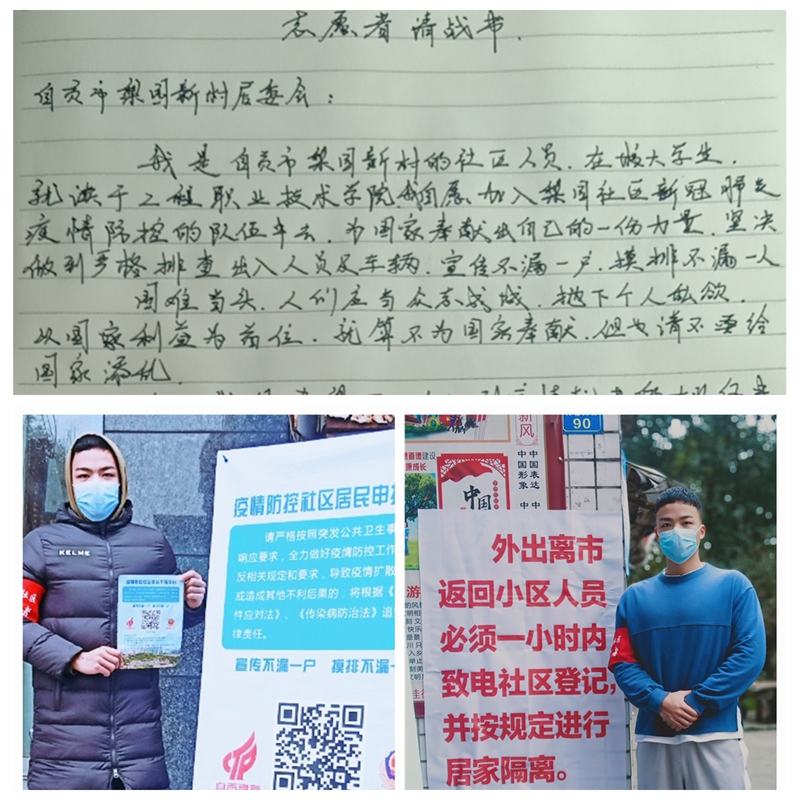 志愿者请战书.
自贡市梨园新村居委会:
我是自贡市梨园新村的社区人员.在校大学生.
就读于工程职业技术学院我自愿加入梨园社区新冠肺炎
疫情防控的队伍中去.为国家奉献出自己的一份力量.坚决
做到严格排查出入人员及车辆.宣传不漏一户.摸排不漏一人
国难当头.人们应当众志成城.抛下个人私欲.
以国家利益为首位.就算不为国家奉献.但也请不要给
国家添乱.
KELME
疫情防控社区居民申报
请严格按照突发公共卫生事
响应要求,全力做好疫情防控工作
反相关规定和要求,导致疫情扩散
或造成其他不利后果的,将根据《
件应对法》、《传染病防治法》追
律责任。
宣传不漏一户 摸排不漏一
90
新风
中国形象
中国表达
中国
外出离市
返回小区人员
必须一小时内
致电社区登记,
并按规定进行
居家隔离。